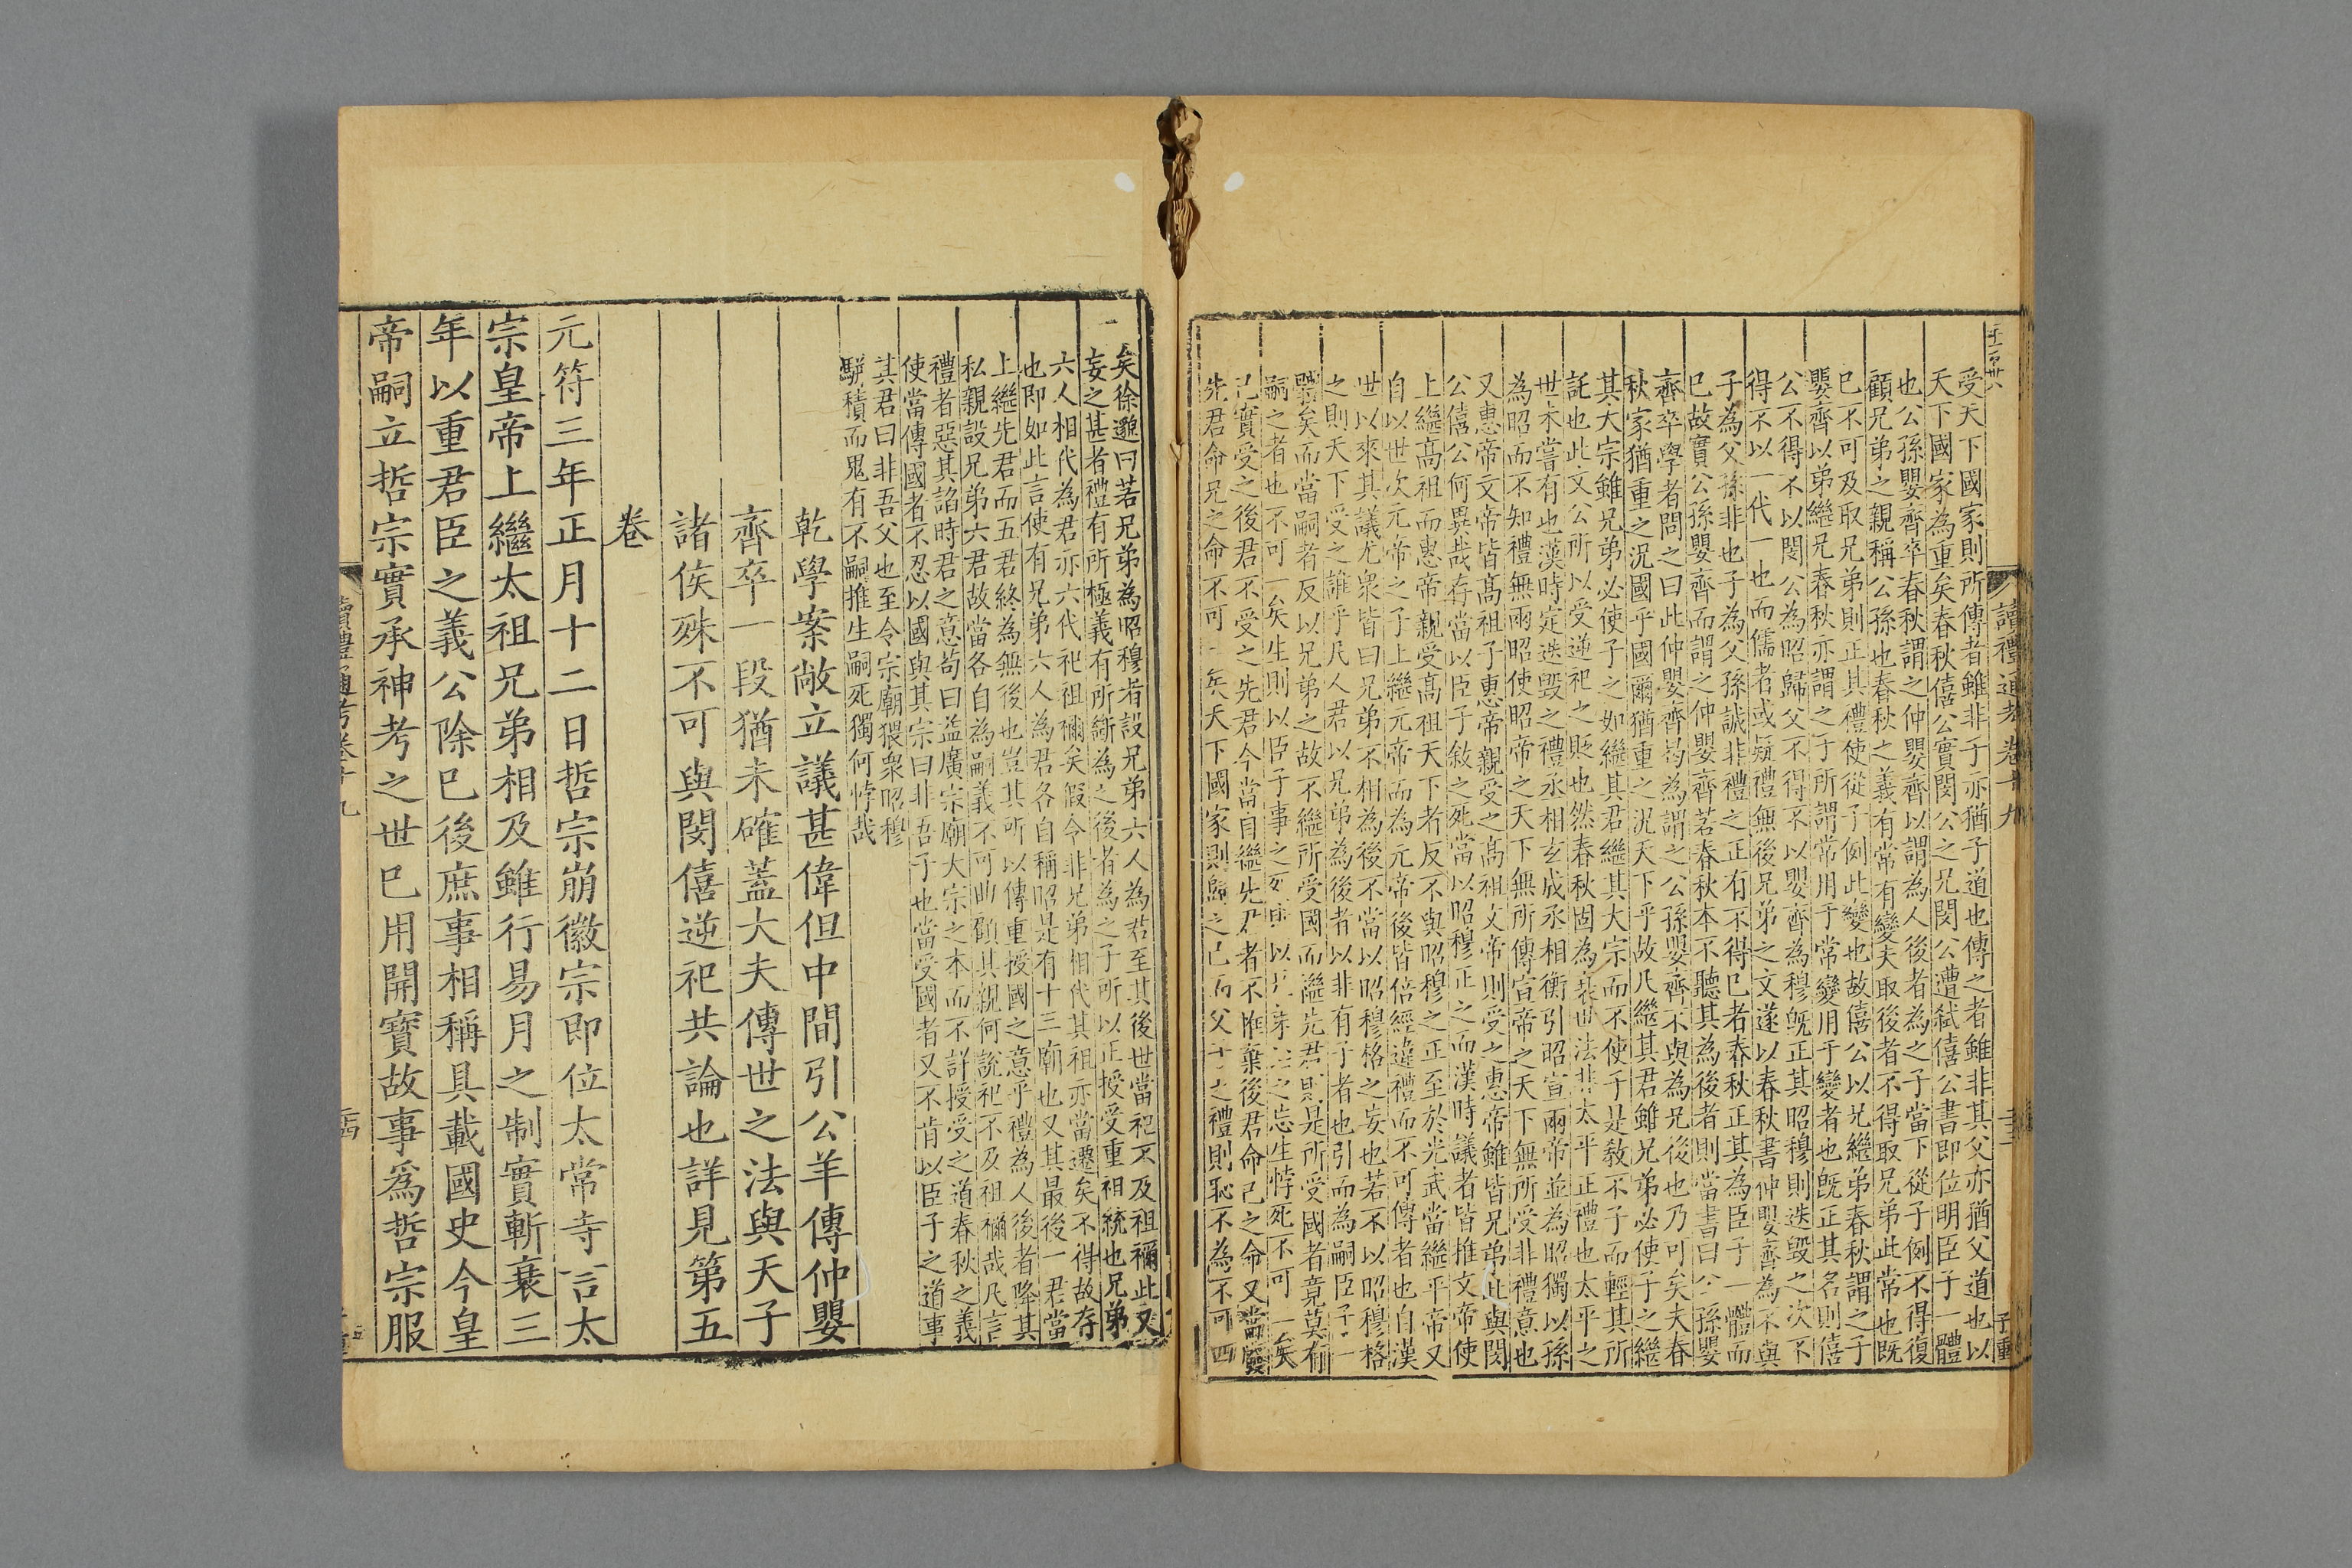 讀禮通考卷十九
受天下國家則所傳者雖非子亦猶子道也傳之者雖非其父亦猶父道也以
天下國家為重矣春秋僖公實閔公之兄閔公遭弑僖公書即位明臣子一體
也公孫嬰齊卒春秋謂之仲嬰齊以謂為人後者為之子當下從子例不得復
顧兄弟之親稱公孫也春秋之義有常有變夫取後者不得取兄弟此常也既
已不可及取兄弟則正其禮使從子例此變也故僖公以兄繼弟春秋謂之子
嬰齊以弟繼兄春秋亦謂之子所謂常用于常變用于變者也既正其名則僖
公不得不以閔公為昭歸父不得不以嬰齊為穆既正其昭穆則迭毀之次不
得不以一代一也而儒者或疑禮無後兄弟之文遂以春秋書仲嬰齊為不與
子為父孫非也子為父孫誠非禮之正有不得已者春秋正其為臣子一體而
已故實公孫嬰齊而謂之仲嬰齊若春秋本不聽其為後者則當書曰公孫嬰
齊卒學者問之曰此仲嬰齊曷為謂之公孫嬰齊不與為兄後也乃可矣夫春
秋家猶重之況國乎國爾猶重之況天下乎故凡繼其君雖兄弟必使子之繼
其大宗雖兄弟必使子之如繼其君繼其大宗而不使子是教不子而輕其所
託也此文公所以受逆祀之貶也然春秋固為衰世法非太平正禮也太平之
世未嘗有也漢時定迭毀之禮丞相玄成丞相衡引昭宣兩帝並為昭獨以孫
為昭而不知禮無兩昭使昭帝之天下無所傳宣帝之天下無所受非禮意也
又惠帝文帝皆高祖子惠帝親受之高祖文帝則受之惠帝雖皆兄弟此與閔
公僖公何異哉存當以臣子敘之死當以昭穆正之而漢時議者皆推文帝使
上繼高祖而惠帝親受高祖天下者反不與昭穆之正至於光武當繼平帝又
自以世次元帝之子上繼元帝而為元帝後皆倍經違禮而不可傳者也自漢
世以來其議尤衆皆曰兄弟不相為後不當以昭穆格之妄也若不以昭穆格
之則天下受之誰乎凡人君以兄弟為後者以非有子者也引而為嗣臣子一
體矣而當嗣者反以兄弟之故不繼所受國而繼先君則是所受國者竟莫有
嗣之者也不可一矣生則以臣子事之死則以兄弟之忘生悖死不可一矣
己實受之後君不受之先君今當自繼先君者不惟棄後君命己之命又當廢
先君命兄之命不可一矣天下國家則歸之己而父子之禮則恥不為不可四
矣徐邈曰若兄弟為昭穆者設兄弟六人為君至其後世當祀不及祖禰此又
妄之甚者禮有所極義有所斷為之後者為之子所以正授受重祖統也兄弟
六人相代為君亦六代祀祖禰矣假令非兄弟相代其祖亦當遷矣不得故存
也即如此言使有兄弟六人為君各自稱昭是有十三廟也又其最後一君當
上繼先君而五君終為無後也豈其所以傳重授國之意乎禮為人後者降其
私親設兄弟六君故當各自為嗣義不可曲顧其親何說祀不及祖禰哉凡言
禮者惡其諂時君之意苟曰益廣宗廟大宗之本而不詳授受之道春秋之義
使當傳國者不忍以國與其宗曰非吾子也當受國者又不肯以臣子之道事
其君曰非吾父也至令宗廟猥衆昭穆
駢積而鬼有不嗣推生嗣死獨何悖哉
乾學案敞立議甚偉但中間引公羊傳仲嬰
齊卒一段猶未確蓋大夫傳世之法與天子
諸侯殊不可與閔僖逆祀共論也詳見第五
卷
元符三年正月十二日哲宗崩徽宗即位太常寺言太
宗皇帝上繼太祖兄弟相及雖行易月之制實斬衰三
年以重君臣之義公除已後庶事相稱具載國史今皇
帝嗣立哲宗實承神考之世已用開寶故事爲哲宗服